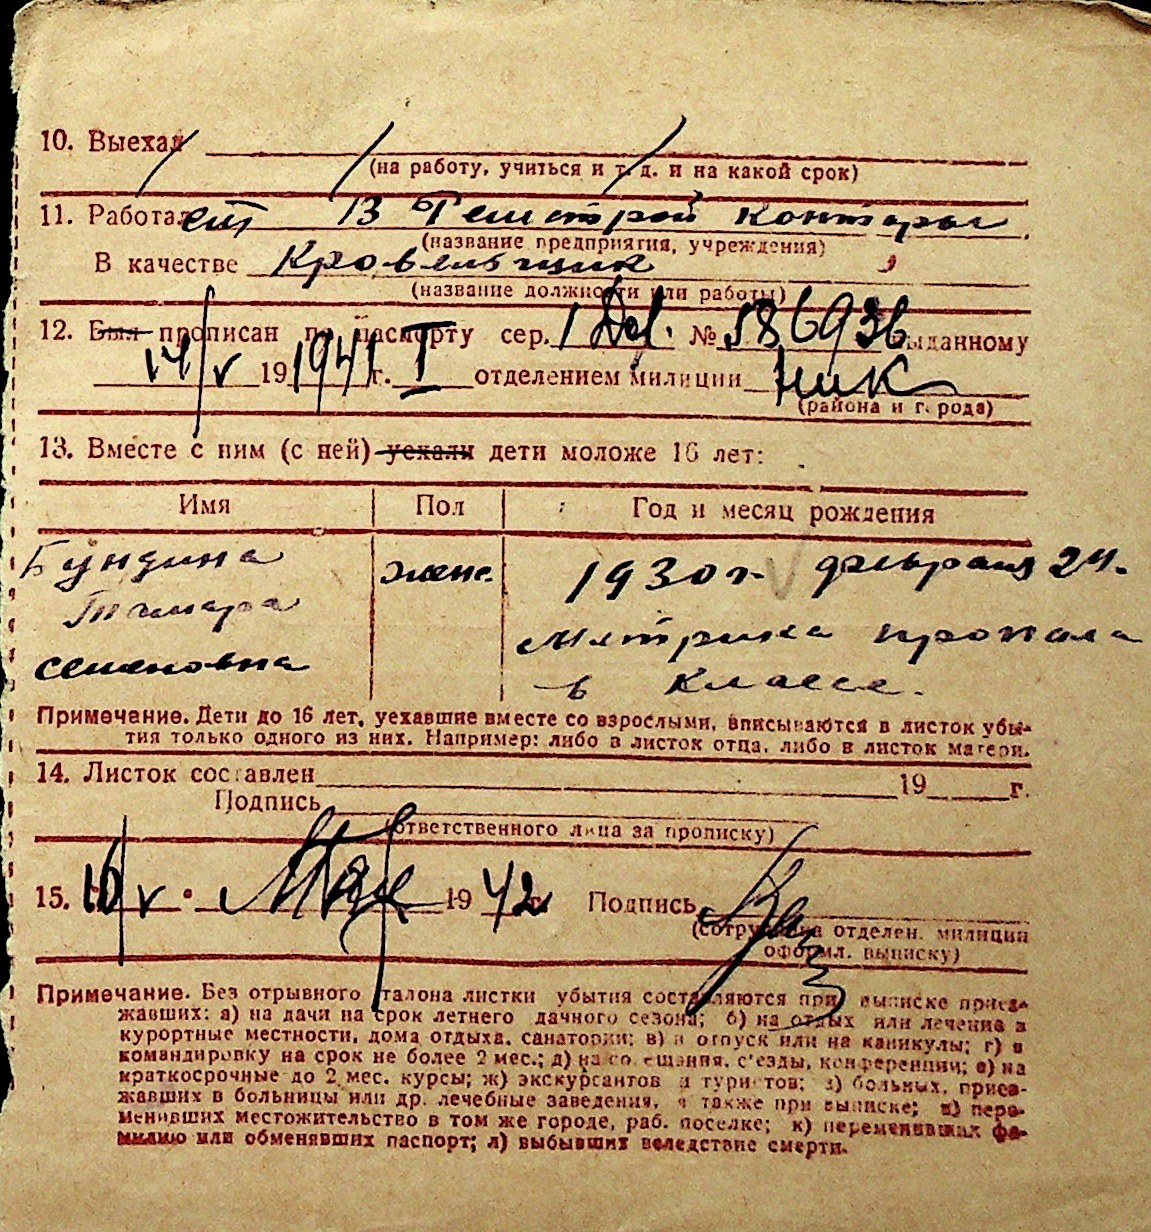 10. Выехал
(на работу, учиться и т. д. и на какой срок)
11. Работает В конторы
(название предприятия, учреждения)
В качестве Кровельщик
(название должности или работы)
12. Был прописан по паспорту сер. 1 № 586936 выданному
14/V 19 1941 г. I отделением милиции Ник
(района и города)
13. Вместе с ним (с ней) уехали дети моложе 16 лет:
Имя Пол Год и месяц рождения
Бундина женс. 1930 г. февраля 24.
Тамара Метрика пропала
Семеновна в классе.
Примечание. Дети до 16 лет, уехавшие вместе со взрослыми, вписываются в листок убы-
тия только одного из них. Например: либо в листок отца, либо в листок матери.
14. Листок составлен 19 г.
Подпись
(ответственного лица за прописку)
15. 16/V 19 42 г. Подпись
(сотрудника отделен. милиции
оформл. выписку)
Примечание. Без отрывного талона листки убытия составляются при выписке приез-
жавших: а) на дачи на срок летнего дачного сезона; б) на отдых или лечение в
курортные местности, дома отдыха, санатории; в) в отпуск или на каникулы; г) в
командировку на срок не более 2 мес.; д) на совещания, с'езды, конференции; е) на
краткосрочные до 2 мес. курсы; ж) экскурсантов и туристов; з) больных, приез-
жавших в больницы или др. лечебные заведения, а также при выписке; и) пере-
менивших местожительство в том же городе, раб. поселке; к) переменивших фа-
милию или обменявших паспорт; л) выбывших вследствие смерти.